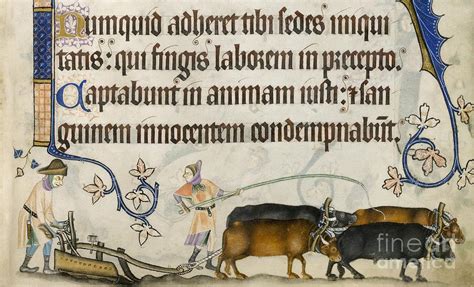 Numquid adheret tibi sedes iniqui
tatis: qui fingis laborem in precepto.
Captabunt in animam iusti: & san
guinem innocentem condempnabūt.
fineart
america